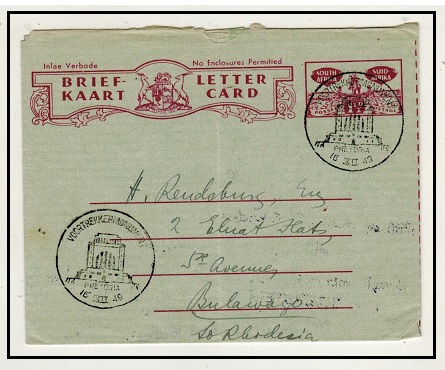 Inlae Verbode
No Enclosures Permitted
BRIEF-
KAART
LETTER
CARD
SOUTH
AFRICA
SUID
AFRIKA
PRETORIA
16 XII 49
H. Rendsburg, Esq
2 Elnat Flats
5th Avenue,
Bulawayo
So Rhodesia
VOORTREKKERMONUMENT
PRETORIA
16 XII 49